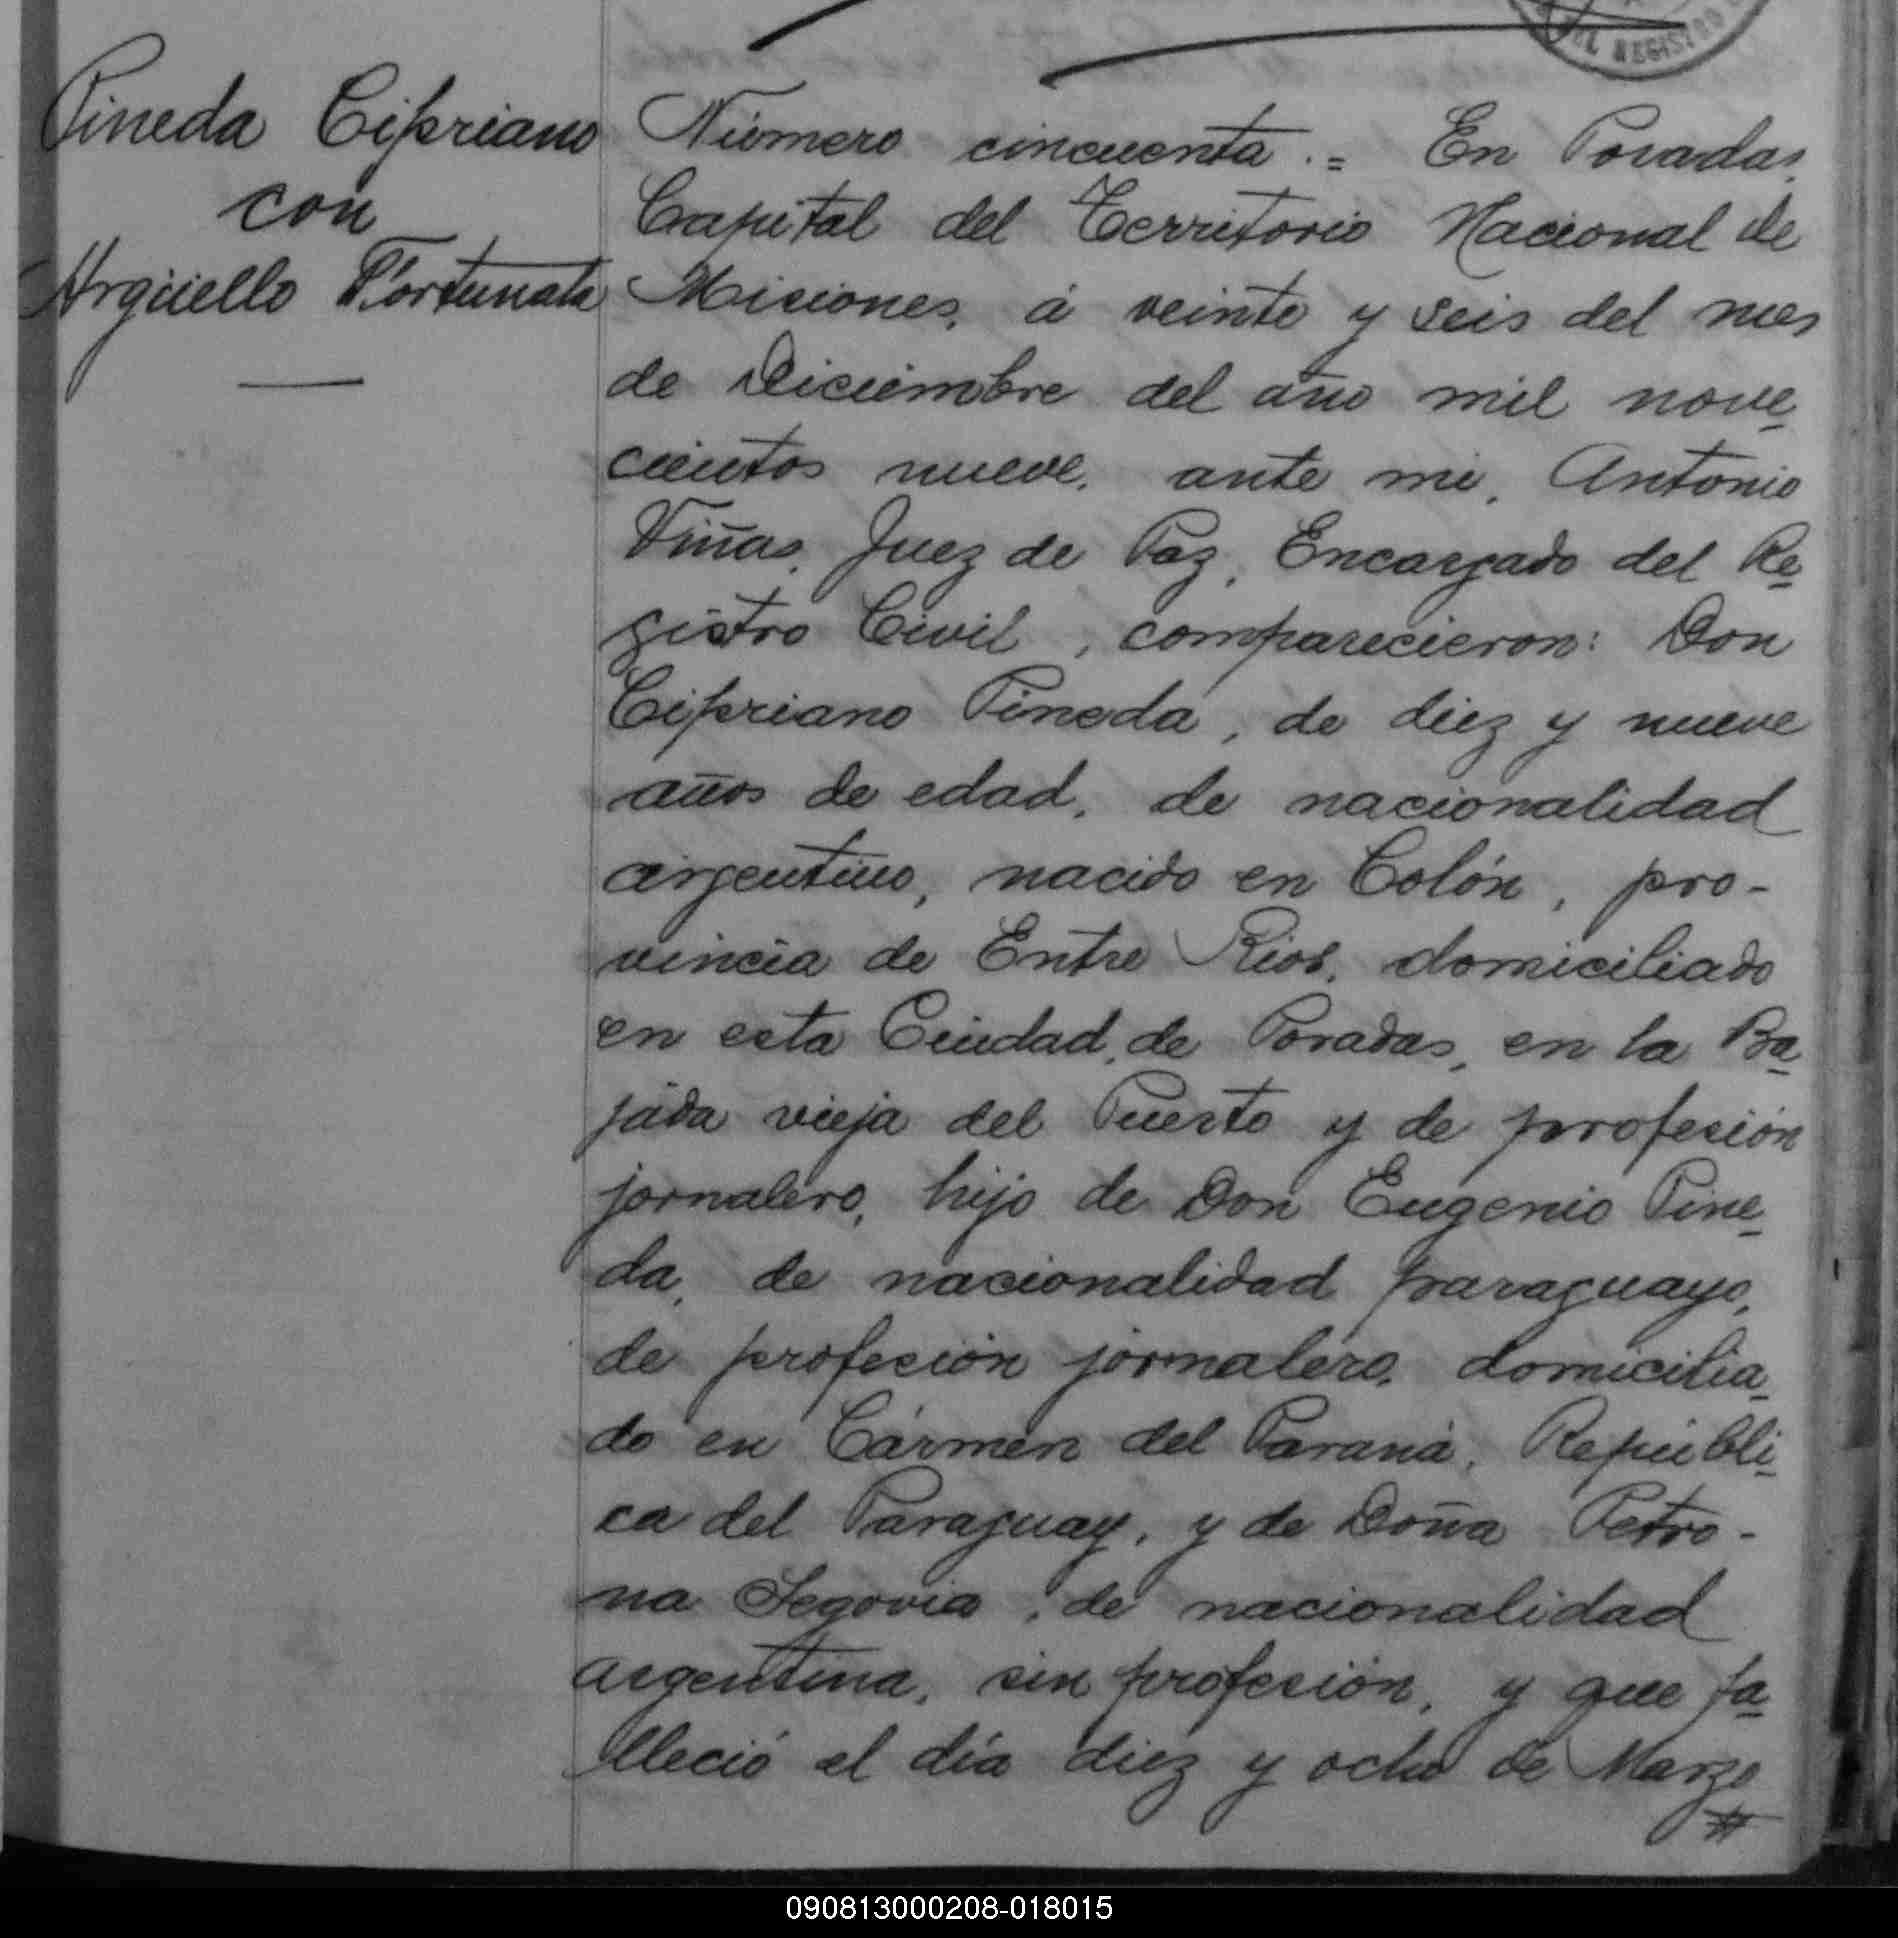 DEL REGISTRO
Pineda Cipriano
con
Argüello Fortunata
Número cincuenta .= En Posadas,
Capital del Territorio Nacional de
Misiones, á veinte y seis del mes
de Diciembre del año mil nove
cientos nueve, ante mi, Antonio
Viñas, Juez de Paz, Encargado del Re
gistro Civil, comparecieron: Don
Cipriano Pineda, de diez y nueve
años de edad, de nacionalidad
argentino, nacido en Colón, pro-
vincia de Entre Rios, domiciliado
en esta Ciudad, de Posadas, en la Ba
jada vieja del Puerto y de profesión
jornalero, hijo de Don Eugenio Pine
da, de nacionalidad paraguayo,
de profesión jornalero, domicilia
do en Cármen del Paraná, Repúbli
ca del Paraguay, y de Doña Petro-
na Segovia, de nacionalidad
argentina, sin profesión, y que fa
lleció el día diez y ocho de Marzo
#
090813000208-018015